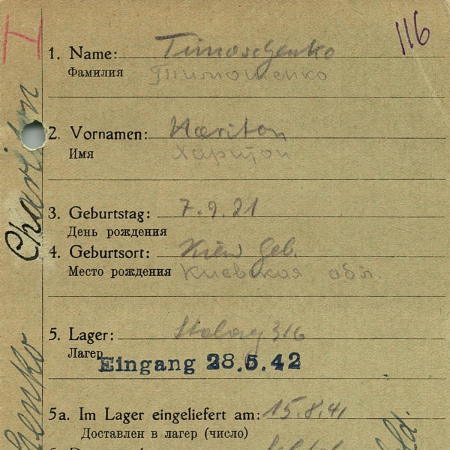 116
1. Name: Timoschenko
Фамилия Тимошенко
2. Vornamen: Hariton
Имя Харитон
3. Geburtstag: 7.9.21
День рождения
4. Geburtsort: Kiew Geb.
Место рождения Киевская обл.
5. Lager: Stalag 316
Лагер
Eingang 28.5.42
5a. Im Lager eingeliefert am: 15.8.41
Доставлен в лагер (число)
Chariton